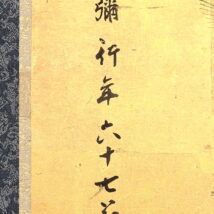 彌行年六十七